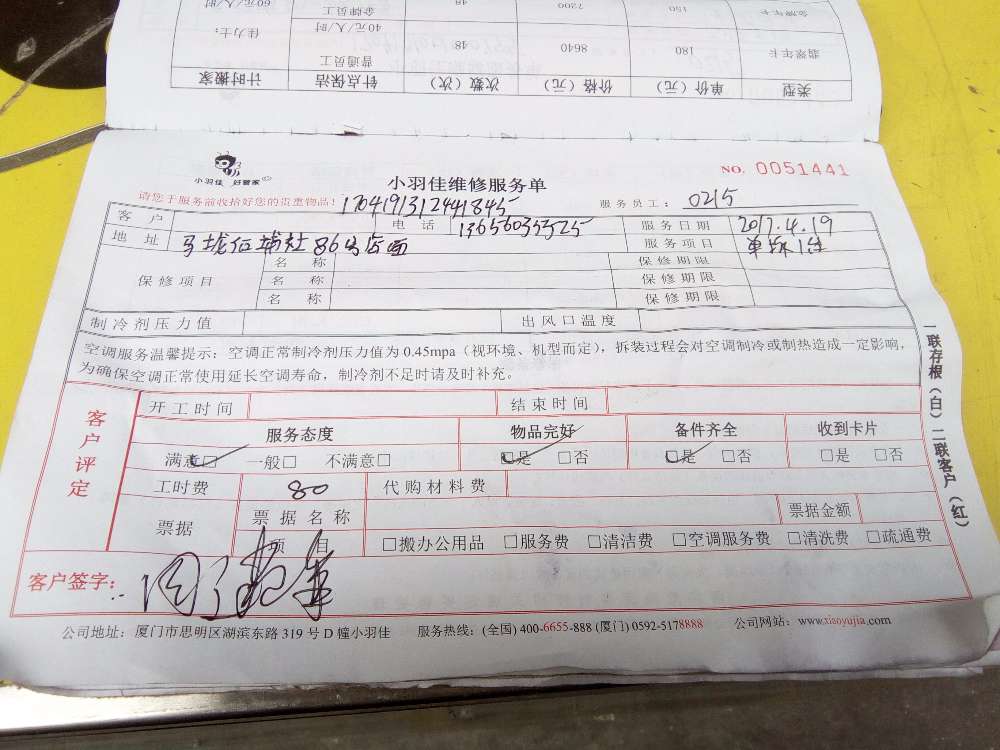 类型 单价（元） 价格（元） 次数（次） 针点保洁 计时搬家
翡翠年卡 180 8640 48 普通员工 40元/人/时 佳力士:
金牌年卡 150 7200 48 金牌员工 60元/人/时
小羽佳 好管家
小羽佳维修服务单
NO. 0051441
请您于服务前收拾好您的贵重物品! 1704191312441845
服务员工: 0215
客户 电话 13656035525 服务日期 2017.4.19
地址 86号店面 服务项目 单拆1台
保修项目 名称 保修期限
名称 保修期限
名称 保修期限
制冷剂压力值 出风口温度
空调服务温馨提示：空调正常制冷剂压力值为0.45mpa（视环境、机型而定），拆装过程会对空调制冷或制热造成一定影响，
为确保空调正常使用延长空调寿命，制冷剂不足时请及时补充。
客户评定
开工时间 结束时间
服务态度 物品完好 备件齐全 收到卡片
满意□ 一般□ 不满意□ □是 □否 □是 □否 □是 □否
工时费 80 代购材料费
票据 票据名称 票据金额
项目 □搬办公用品 □服务费 □清洁费 □空调服务费 □清洗费 □疏通费
客户签字:
一联存根（白）二联客户（红）
公司地址：厦门市思明区湖滨东路319号D幢小羽佳 服务热线：(全国) 400-6655-888 (厦门) 0592-5178888 公司网站：www.xiaoyujia.com